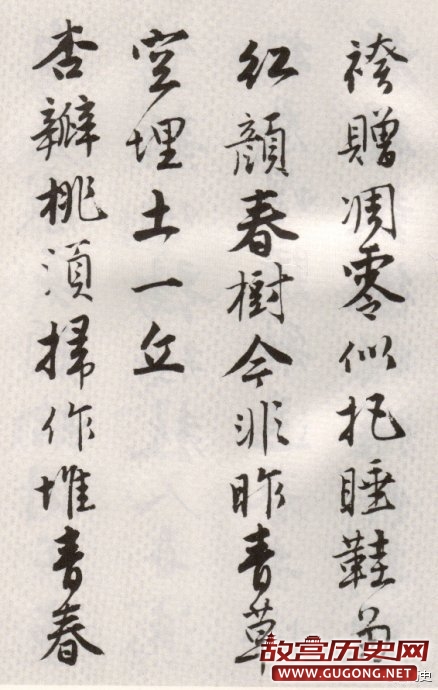 袴贈凋零似把睡鞋
紅顔春樹今非昨青草
空埋土一丘
杏瓣桃須掃作堆青春
故宫历史网
WWW.GUGONG.NET
史